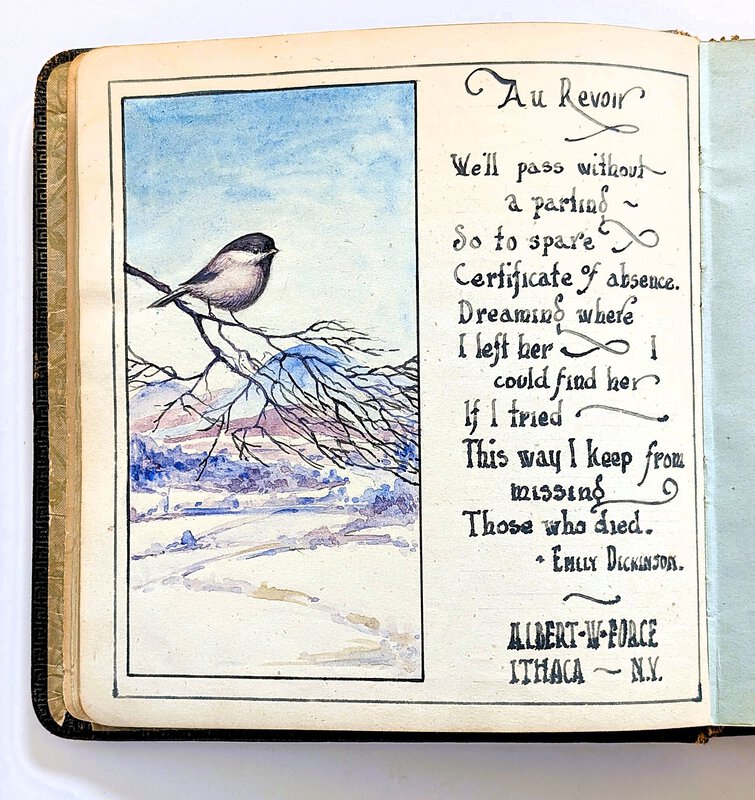 Au Revoir
We'll pass without
a parting ~
So to spare
Certificate of absence.
Dreaming where
I left her ~ I
could find her
If I tried ~
This way I keep from
missing
Those who died.
- Emily Dickinson.
ALBERT-W-FORCE
ITHACA ~ N.Y.